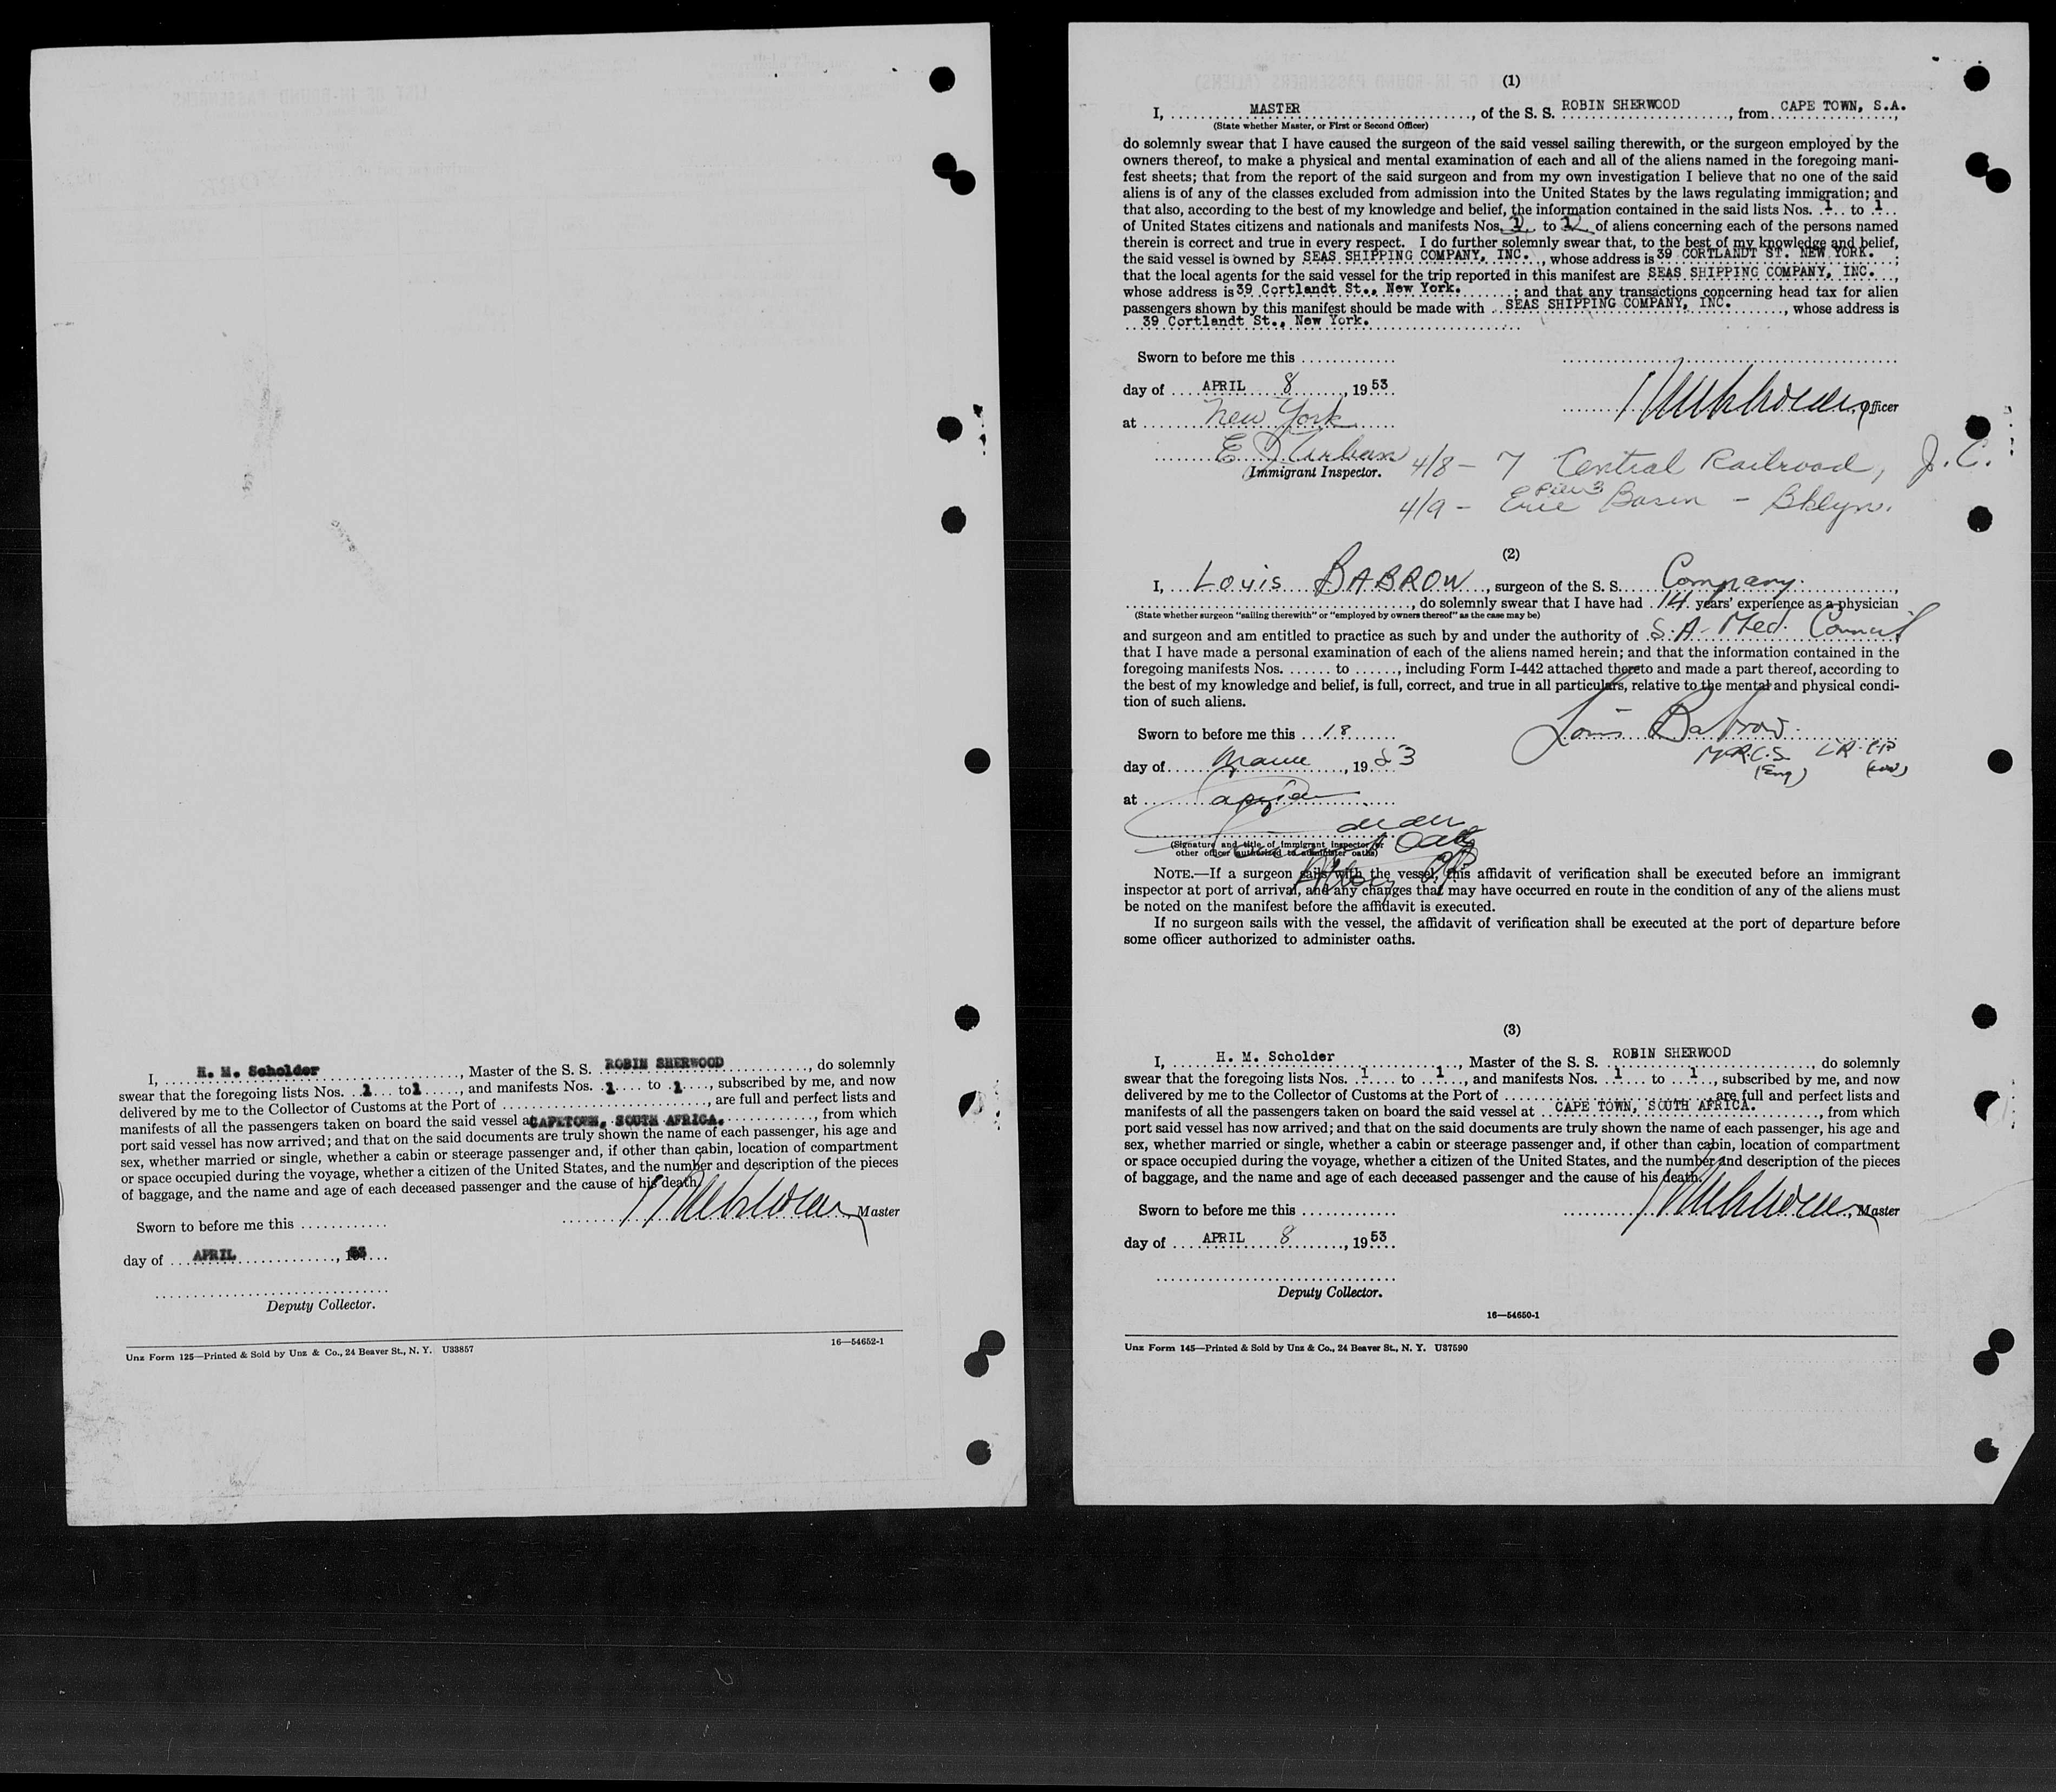 I, H. M. Scholder, Master of the S. S. ROBIN SHERWOOD, do solemnly
swear that the foregoing lists Nos. 1 to 1, and manifests Nos. 1 to 1, subscribed by me, and now
delivered by me to the Collector of Customs at the Port of ........, are full and perfect lists and
manifests of all the passengers taken on board the said vessel at CAPETOWN, SOUTH AFRICA., from which
port said vessel has now arrived; and that on the said documents are truly shown the name of each passenger, his age and
sex, whether married or single, whether a cabin or steerage passenger and, if other than cabin, location of compartment
or space occupied during the voyage, whether a citizen of the United States, and the number and description of the pieces
of baggage, and the name and age of each deceased passenger and the cause of his death.
Master
Sworn to before me this ............
day of APRIL, 1953
Deputy Collector.
16—54652-1
Unz Form 125—Printed & Sold by Unz & Co., 24 Beaver St., N. Y. U33857
(1)
I, MASTER, of the S. S. ROBIN SHERWOOD, from CAPE TOWN, S.A.,
(State whether Master, or First or Second Officer)
do solemnly swear that I have caused the surgeon of the said vessel sailing therewith, or the surgeon employed by the
owners thereof, to make a physical and mental examination of each and all of the aliens named in the foregoing mani-
fest sheets; that from the report of the said surgeon and from my own investigation I believe that no one of the said
aliens is of any of the classes excluded from admission into the United States by the laws regulating immigration; and
that also, according to the best of my knowledge and belief, the information contained in the said lists Nos. 1 to 1
of United States citizens and nationals and manifests Nos. to of aliens concerning each of the persons named
therein is correct and true in every respect. I do further solemnly swear that, to the best of my knowledge and belief,
the said vessel is owned by SEAS SHIPPING COMPANY, INC., whose address is 39 CORTLANDT ST. NEW YORK.;
that the local agents for the said vessel for the trip reported in this manifest are SEAS SHIPPING COMPANY, INC.,
whose address is 39 Cortlandt St., New York.; and that any transactions concerning head tax for alien
passengers shown by this manifest should be made with SEAS SHIPPING COMPANY, INC., whose address is
39 Cortlandt St., New York.
Sworn to before me this ............
day of APRIL 8, 1953
Officer
at New York
Immigrant Inspector.
4/8 - 7 Central Railroad, J.C.
4/9 - Erie Basin Pier 3 - Bklyn.
(2)
I, Louis BABROW, surgeon of the S. S. Company.,
........, do solemnly swear that I have had 14 years' experience as a physician
(State whether surgeon "sailing therewith" or "employed by owners thereof" as the case may be)
and surgeon and am entitled to practice as such by and under the authority of S.A. Med. Council
that I have made a personal examination of each of the aliens named herein; and that the information contained in the
foregoing manifests Nos. ...... to ......, including Form I-442 attached thereto and made a part thereof, according to
the best of my knowledge and belief, is full, correct, and true in all particulars, relative to the mental and physical condi-
tion of such aliens.
Sworn to before me this 18
Louis Babrow.
M.R.C.S. L.R.C.P.
(Eng)
day of, 1953
at
(Signature and title of immigrant inspector or
other officer authorized to administer oaths)
NOTE.—If a surgeon sails with the vessel, this affidavit of verification shall be executed before an immigrant
inspector at port of arrival, and any changes that may have occurred en route in the condition of any of the aliens must
be noted on the manifest before the affidavit is executed.
If no surgeon sails with the vessel, the affidavit of verification shall be executed at the port of departure before
some officer authorized to administer oaths.
(3)
I, H. M. Scholder, Master of the S. S. ROBIN SHERWOOD, do solemnly
swear that the foregoing lists Nos. 1 to 1, and manifests Nos. 1 to 1, subscribed by me, and now
delivered by me to the Collector of Customs at the Port of ........ are full and perfect lists and
manifests of all the passengers taken on board the said vessel at CAPE TOWN, SOUTH AFRICA., from which
port said vessel has now arrived; and that on the said documents are truly shown the name of each passenger, his age and
sex, whether married or single, whether a cabin or steerage passenger and, if other than cabin, location of compartment
or space occupied during the voyage, whether a citizen of the United States, and the number and description of the pieces
of baggage, and the name and age of each deceased passenger and the cause of his death.
Sworn to before me this ............
Master
day of APRIL 8, 1953
Deputy Collector.
16—54650-1
Unz Form 145—Printed & Sold by Unz & Co., 24 Beaver St., N. Y. U37590